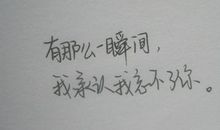 有那么一瞬间，
我承认我忘不了你。